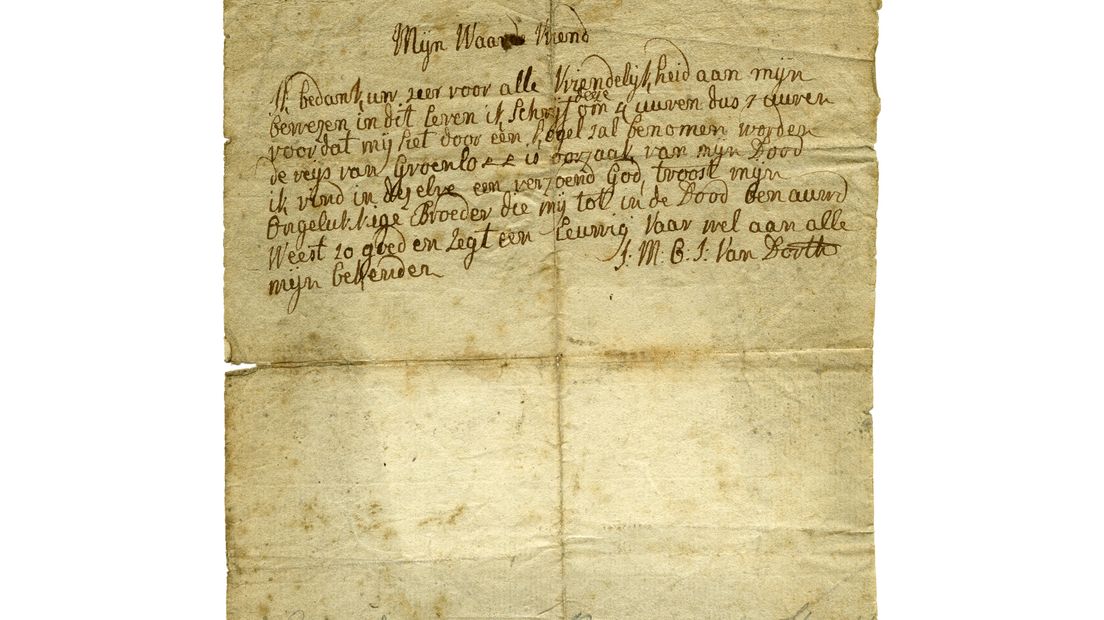 Mijn Waarde Vriend
Ik bedank uw zeer voor alle Vriendelijkheid aan mijn
bewezen in dit Leven ik schrijf deze om 4 uuren dus 7 uuren
voor dat mij het door een kogel zal benomen worden
de reijs van Groenlo is oorzaak van mijn Dood
ik vind in een verzoend God, troost mijn
Ongelukkige Broeder die mij tot in de Dood benauwd
Weest zo goed en zegt een Eeuwig Vaar wel aan alle
mijn bekenden
J. M. C. J. Van Dorth